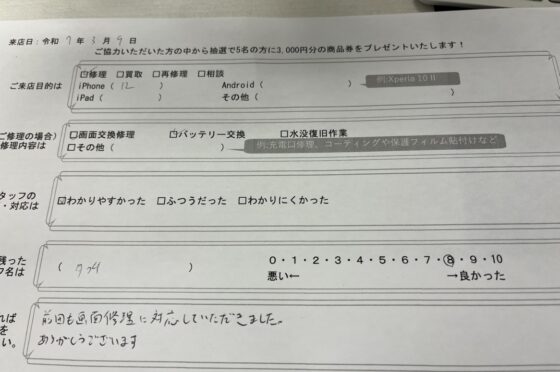 来店日：令和 7 年 3 月 9 日
ご協力いただいた方の中から抽選で5名の方に3,000円分の商品券をプレゼントいたします！
ご来店目的は
☑修理 □買取 □再修理 □相談
iPhone（ 12 ） Android（ ） 例:Xperia 10 II
iPad（ ） その他（ ）
ご修理の場合）
修理内容は
□画面交換修理 ☑バッテリー交換 □水没復旧作業
□その他（ ） 例:充電口修理、コーティングや保護フィルム貼付けなど
タッフの
・対応は
☑わかりやすかった □ふつうだった □わかりにくかった
残った
フ名は
（ ）
0・1・2・3・4・5・6・7・8・9・10
悪い← →良かった
れば
を
い。
前回も画面修理に対応していただきました。
ありがとうございます